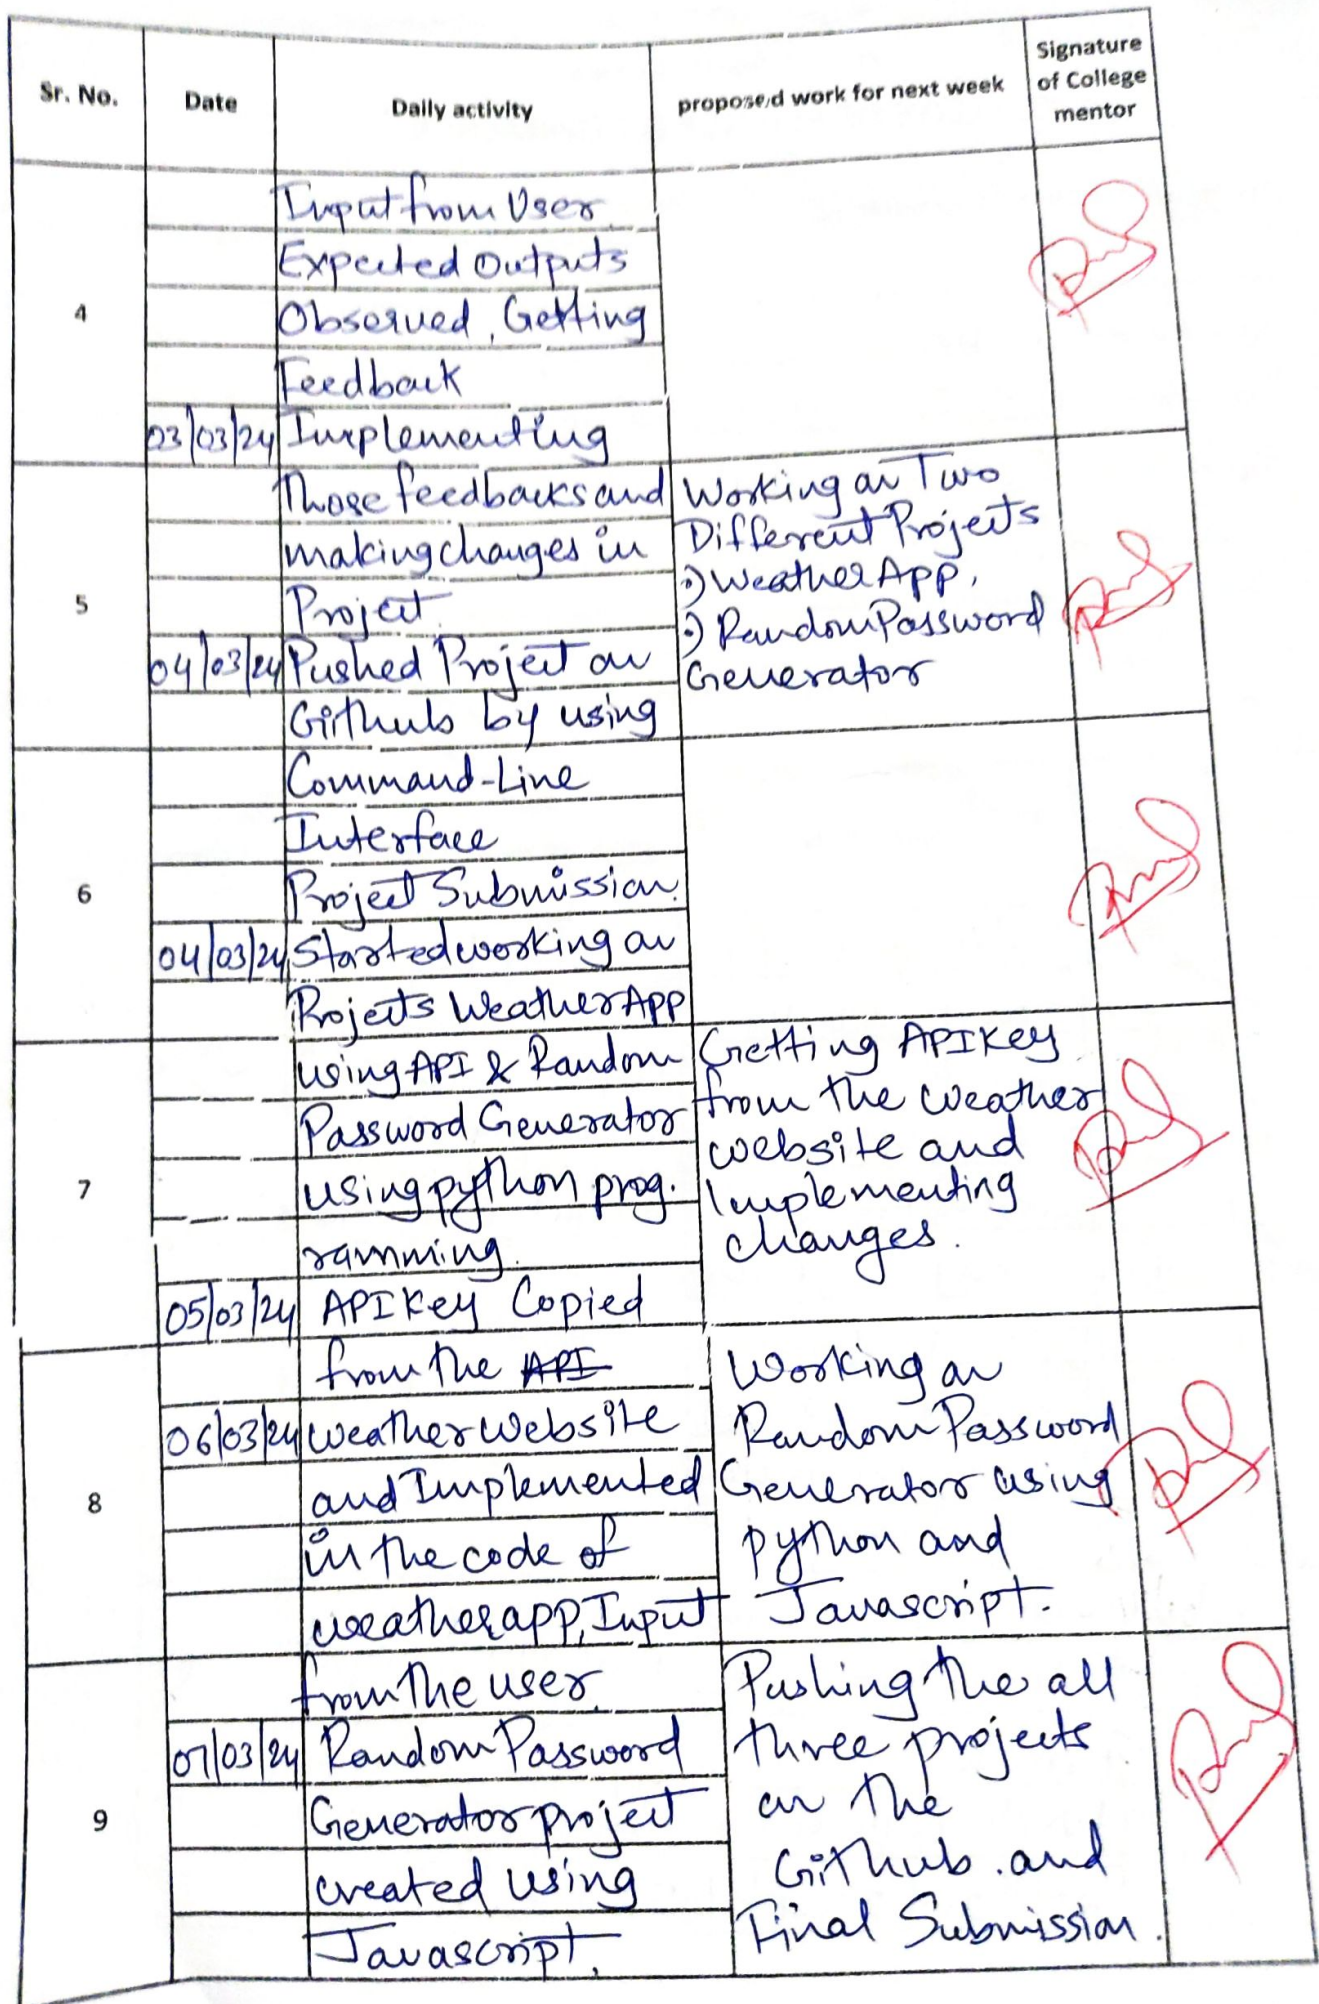 Sr. No.
Date
Daily activity
proposed work for next week
Signature
of College
mentor
4
Input from User
Expected Outputs
Observed, Getting
Feedback
03/03/24 Implementing
5
Those feedbacks and
making changes in
Project.
04/03/24 Pushed Project on
Github by using
Working on Two
Different Projects
:) Weather App.
:) Random Password
Generator
6
Command-Line
Interface
Project Submission.
04/03/24 Started working on
Projects Weather App
7
using API & Random
Password Generator
using python prog.
ramming.
05/03/24 API Key Copied
Getting API Key
from the weather
website and
Implementing
changes.
8
from the API
06/03/24 weather website
and Implemented
in the code of
weather app, Input
Working on
Random Password
Generator using
python and
Javascript.
9
from the user.
07/03/24 Random Password
Generator project
created using
Javascript.
Pushing the all
three projects
on the
GitHub. and
Final Submission.